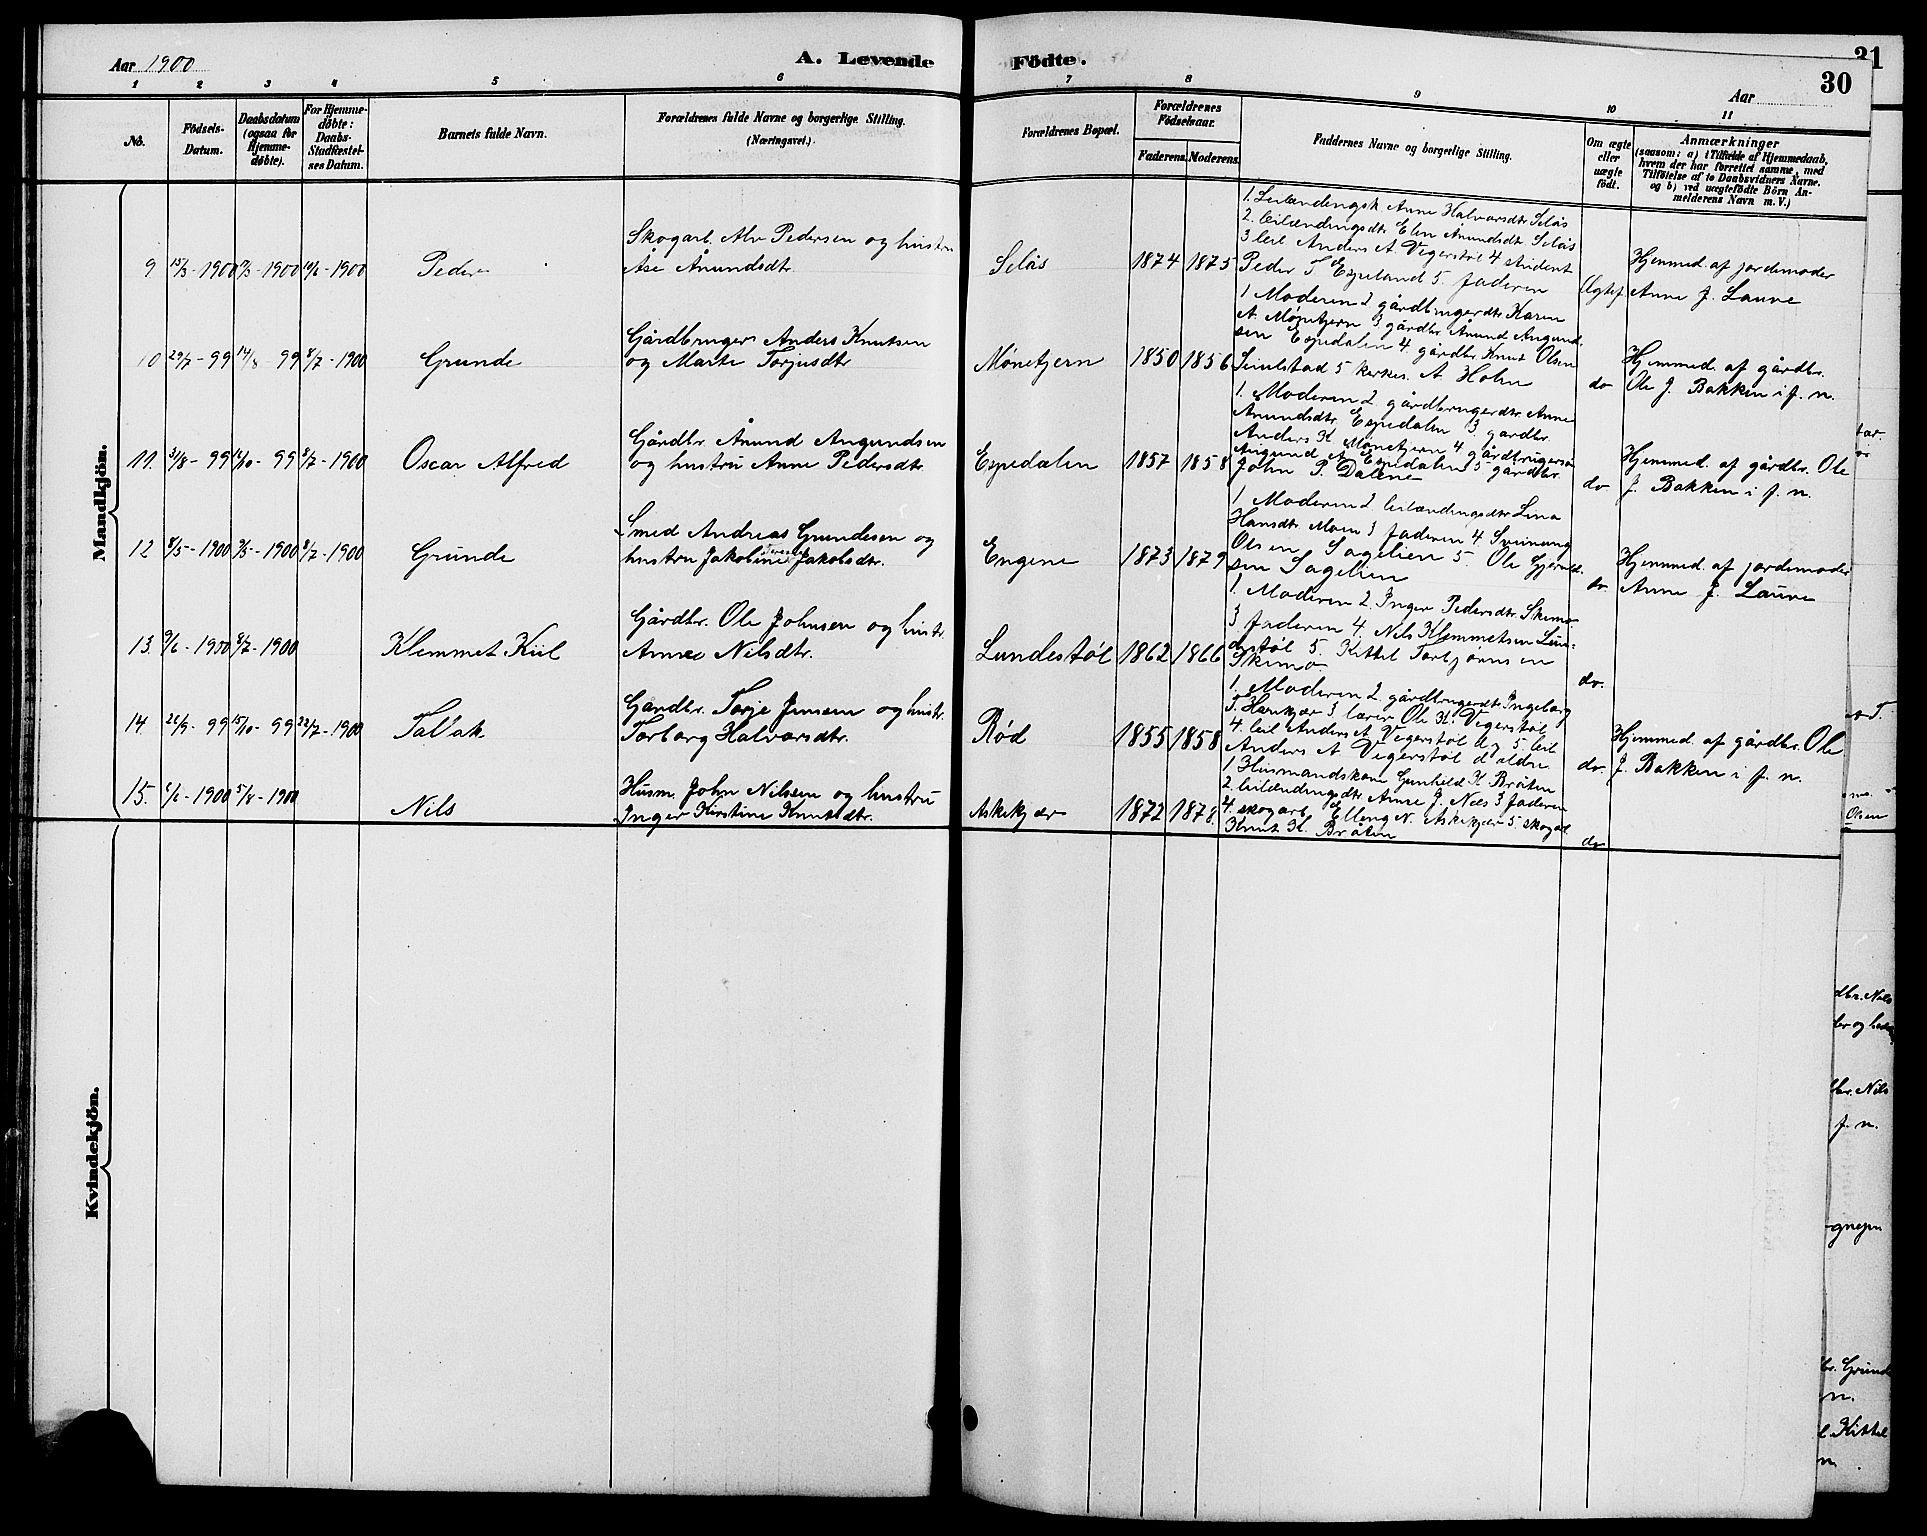 Aar 1900
A. Levende Fødte.
Aar
30
31
1 2 3 4 5 6 7 8 9 10 11
No.
Födsels-Datum.
Daabsdatum (ogsaa for Hjemme-döbte).
For Hjemme-döbte: Daabs-Stadfæstel-ses Datum.
Barnets fulde Navn.
Forældrenes fulde Navne og borgerlige Stilling.
(Næringsvei.)
Forældrenes Bopæl.
Forældrenes Födselsaar.
Faderens. Moderens.
Faddernes Navne og borgerlige Stilling.
Om ægte eller uægte födt.
Anmærkninger
(saasom: a) i Tilfælde af Hjemmedaab,
hvem der har forrettet samme, med
Tilföielse af to Daabsvidners Navne.
og b) ved uægtefödte Börn An-
melderens Navn m. V.)
Mandkjön.
9 15/3-1900 17/3-1900 10/6-1900 Peder
Skogarb. Alv Pedersen og hustru
Åse Ånundsdt.
Selås 1874 1875
1. Leilændingsk. Anne Halvorsdtr Selås
2. leilændingsdtr Elen Ånundsdt. Selås
3 leil Anders A. Vegerstøl 4 student
Peder T Espeland 5. faderen
Ægtef.
Hjemmed. af jordemoder
Anne J. Lauve
10 29/7-99 14/8 99 8/7-1900 Grunde
Gårdbruger Anders Knutsen
og Marte Torjusdtr
Mönetjern 1850 1856
1 Moderen 2 gårdbrugerdtr Karen
A. Mönetjern 3 gårdbr Ånund Angund-
sen Espedalen 4. gårdbr. Knut Olsen
Simlstad 5 kirkes. A. Holm
do
Hjemmed. af gårdbr.
Ole J. Bakken i f. n.
11. 31/8-99 99 8/7-1900 Oscar Alfred
Gårdbr. Ånund Angundsen
og hustru Anne Pedersdtr.
Espedalen 1857 1858
1. Moderen 2. gårdbrugerdtr. Anne
Ånundsdtr. Espedalen 3. gårdbr.
Anders K. Mönetjern 4 gårdbrugersøn
Angund A Espedalen 5 gårdbr.
John P. Dalene
do
Hjemmed. af gårdbr. Ole
J. Bakken i f. n.
12 8/5-1900 9/5-1900 8/7-1900 Grunde
Smed Andreas Grundesen og
hustru Jakobine Terese Jakobsdtr.
Engene 1873 1879
1 Moderen 2 leilændingsdtr. Lina
Hansdtr. Moen 3 faderen 4 Sveinung
Olsen Sagelien 5. Ole Gjeruld-
sen Sagelien
do
Hjemmed. af jordemoder
Anne J. Lauve
13. 9/6-1900 8/7-1900 Klemmet Kiil
Gårdbr. Ole Johnsen og hustr.
Anne Nilsdtr.
Lundestøl 1862 1866
1. Moderen 2. Inger Pedersdtr. Skimo
3 faderen 4. Nils Klemmetsen Lun-
destøl 5. Kittel Torbjørnsen
Skimo
do.
14 99 15/10-99 22/7-1900 Talvak
Gårdbr. Torje Jensen og hustr.
Torborg Halvorsdtr.
Rød 1855 1858
1. Moderen 2 gårdbrugerdt. Ingeborg
T. Haukjær 3 lærer Ole K. Vegerstøl
4. leil Anders A Vegerstøl dy 5. leil
Anders A Vegerstøl d ældre
do.
Hjemmed. af gårdbr. Ole
J. Bakken i f. n.
15. 6/6-1900 5/8-1900 Nils
Husm. John Nilsen og hustru
Inger Kirstine Knutsdtr.
Askekjær 1872 1878
1 Husmandskone Gunhild K Bråten
2. leilændingsdtr Anne J. Næs 3 faderen
4. skogarb Elleng N. Askekjær 5. skogarb
Knut K. Bråten
do
Kvindekjön.
Olsen
dbr. Nils
br. Nils
f. n.
br. Grund
Kittel